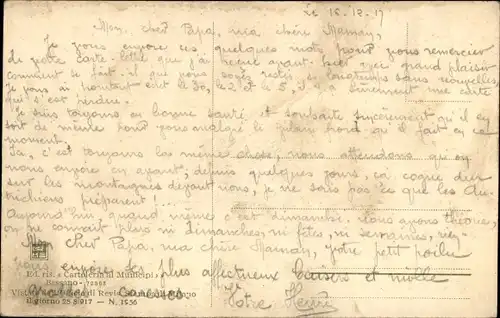 Le 16-12-17
Mon cher Papa, ma chère Maman,
Je vous envoie ces quelques mots pour vous remercier
de votre carte-lettre que j'ai reçue avant-hier avec grand plaisir
comment se fait-il que vous soyez restés si longtemps sans nouvelles
Je vous ai pourtant écrit le 30, le 2 et le 5, il y a sûrement une carte
qui s'est perdue.
Je suis toujours en bonne santé, et souhaite sincèrement qu'il en
soit de même pour vous malgré le grand froid qu'il fait en ce
moment.
Ici, c'est toujours la même chose, nous attendons que on
nous envoie en avant, depuis quelques jours, ça cogne dur
sur les montagnes devant nous, je ne sais pas ce que les Au-
trichiens préparent!...
Aujourd'hui, quand même c'est dimanche
on ne connait plus ni dimanches, ni fêtes, ni semaines, rien
Mon cher Papa, ma chère Maman, votre petit poilu
vous envoie ses plus affectueux baisers et mille
caresses
Votre Henri
Edit. ris. e Cartoleria al Municipi
Bassano - 72963
Visto Revis. Stampa Milano
Bigiorno 25-8-917. - N. 1956